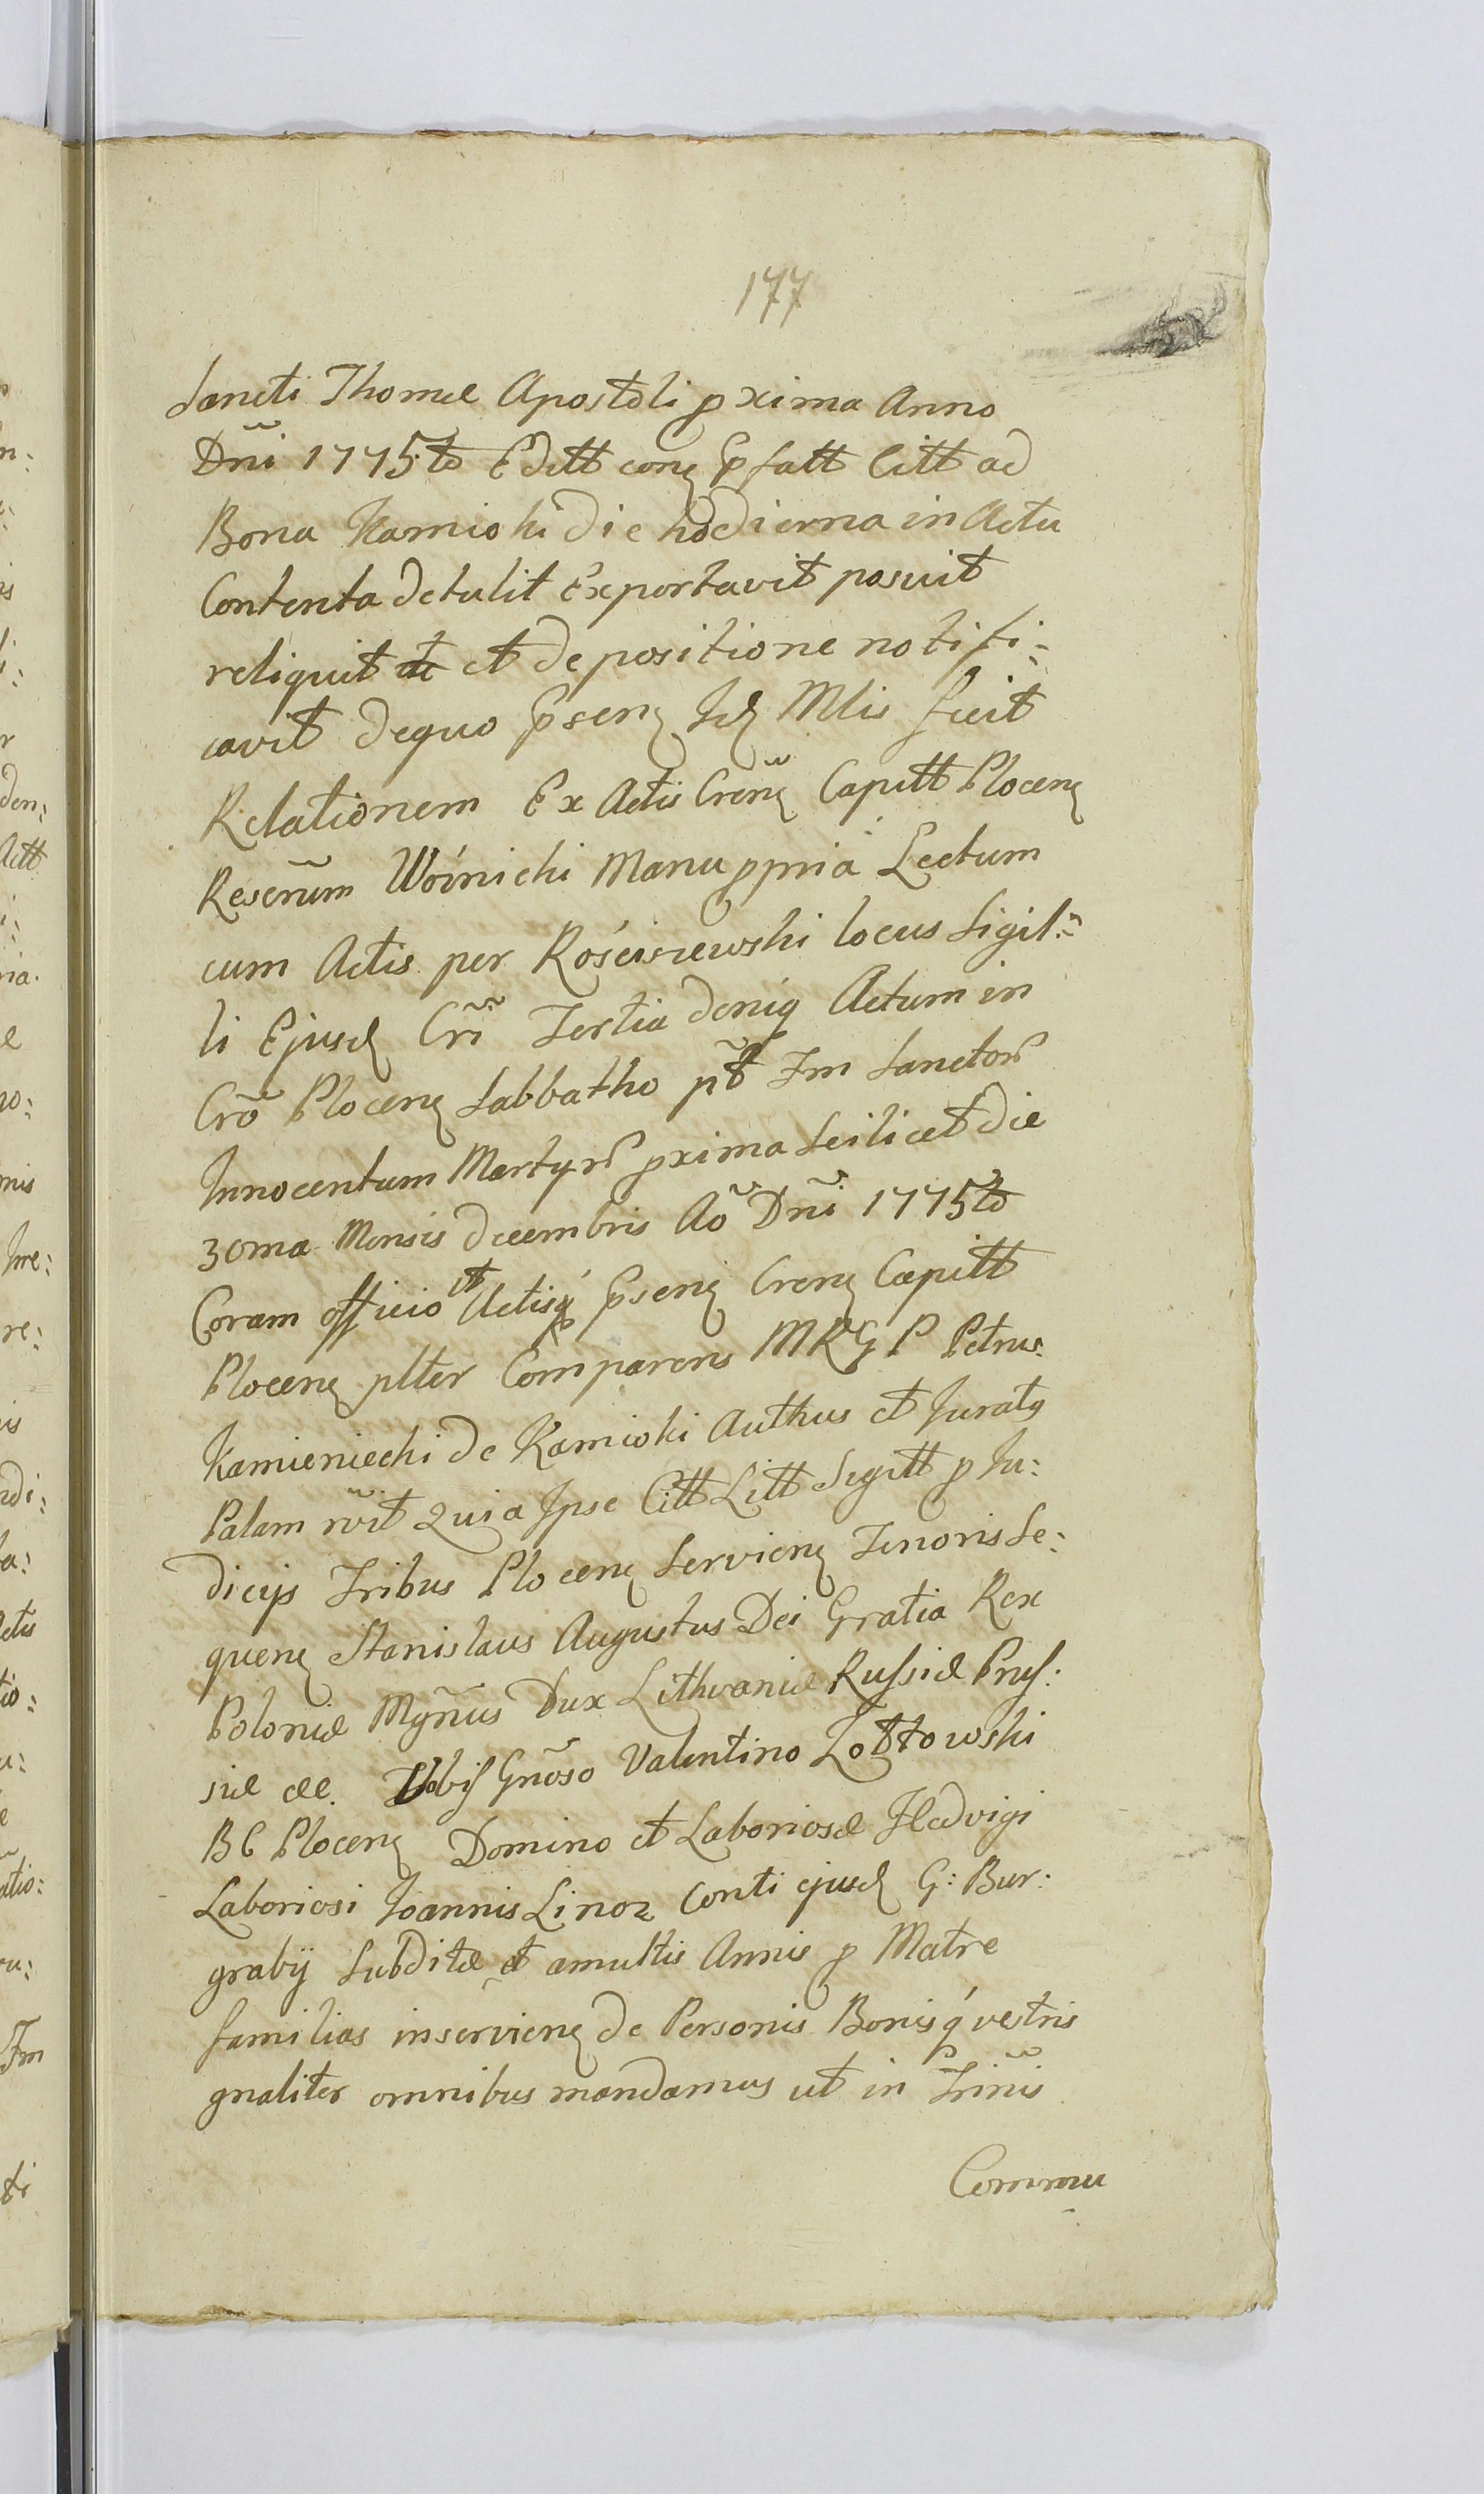 177
Sancti Thomæ Apostoli pxima Anno
Dñi 1775to Editt conę Pfatt Citt ad
Bona Kamioki die hodierna in Actu
Contenta detulit Exportavit posuit
reliquit et depositione notifi:
cavit dequo Psenę Idę Mlis fecit
Relationem Ex Actis Creñę Capitt Plocenę
Rescrũm Wóinichi Manu ppria Lectum
cum Actis per Rościszewski locus Sigil:
li Ejusdę Crĩ Tertia deniq Actum in
Crõ Plocenę Sabbatho pt̃ Fm Sanctor
Innocentum Martyr pxima Scilicet die
30ma Mensis decembris Aõ Dñi 1775to
Coram officio et Actisq́ Psenę Crenę Capitt
Plocenę pltter Comparens MRGP Petrus
Kamieniechi de Kamioki Authus et Juratq
Palam rvit Quia Ipse Citt Litt Sigitt p Iu:
dicijs Tribus Plocenę Servienę Tenoris Se:
quenę Stanislaus Augustus Dei Gratia Rex
Poloniæ Mgñus Dux Lithvaniæ Russiæ Prus:
siæ ee. Vobis Gñoso Valentino Zottowski
BC Plocenę Domino et Laboriosæ Hedvigi
Laboriosi Joannis Linoz Conti ejusdę G: Bur:
grabÿ Subditæ et amultis Annis p Matre
familias inservienę de Personis Bonisq́ vestris
gnaliter omnibus mandamus ut in Trĩnis
Commu